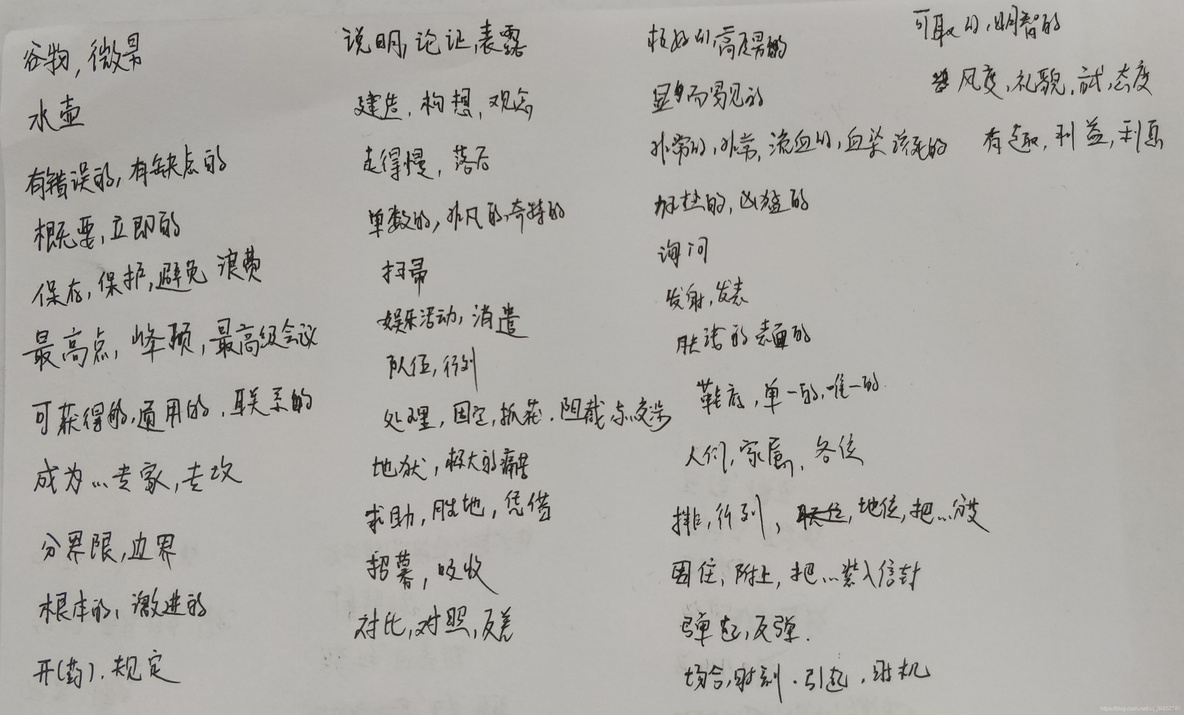 谷物,微量
水壶
有错误的,有缺点的
概要,立即的
保存,保护,避免 浪费
最高点,峰顶,最高级会议
可获得的,通用的,联系的
成为…专家,专攻
分界限,边界
根本的,激进的
开(药).规定
说明,论证,表露
建造,构想,观念
走得慢,落后
单数的,非凡的,奇特的
扫帚
娱乐活动,消遣
队伍,行列
处理,固定,抓花.阻截,与…交涉
地狱,极大的痛苦
求助,胜地,凭借
招募,吸收
对比,对照,反差
极好的,高贵的
显而易见的
非常的,非常,流血的,血染 该死的
加热的,凶猛的
询问
发射,发表
胜诘的 表面的
鞋底,单一的,唯一的
人们,家属,各位
排,行列,地位,把…分发
围住,附上,把…装入信封
弹起,反弹.
场合,时刻.引起,时机
可取的,明智的
风度,礼貌,试,态度
有趣,利益,利息